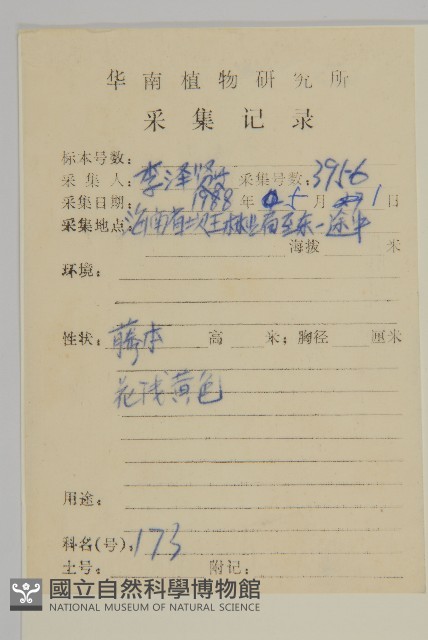 华南植物研究所
采集记录
标本号数:
采集人: 李泽贤 采集号数: 3956
采集日期: 1988 年 5 月 1 日
采集地点: 海南省 王林业局至东一途中
海拨 米
环境:
性状: 藤本 高 米; 胸径 厘米
花浅黄色
用途:
科名(号): 173
土号: 附记:
國立自然科學博物館
NATIONAL MUSEUM OF NATURAL SCIENCE